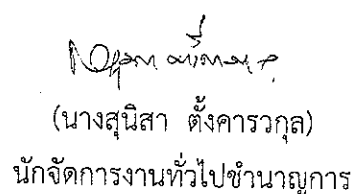 (นางสุนิสา ตั้งคารวกุล)
นักจัดการงานทั่วไปชำนาญการ